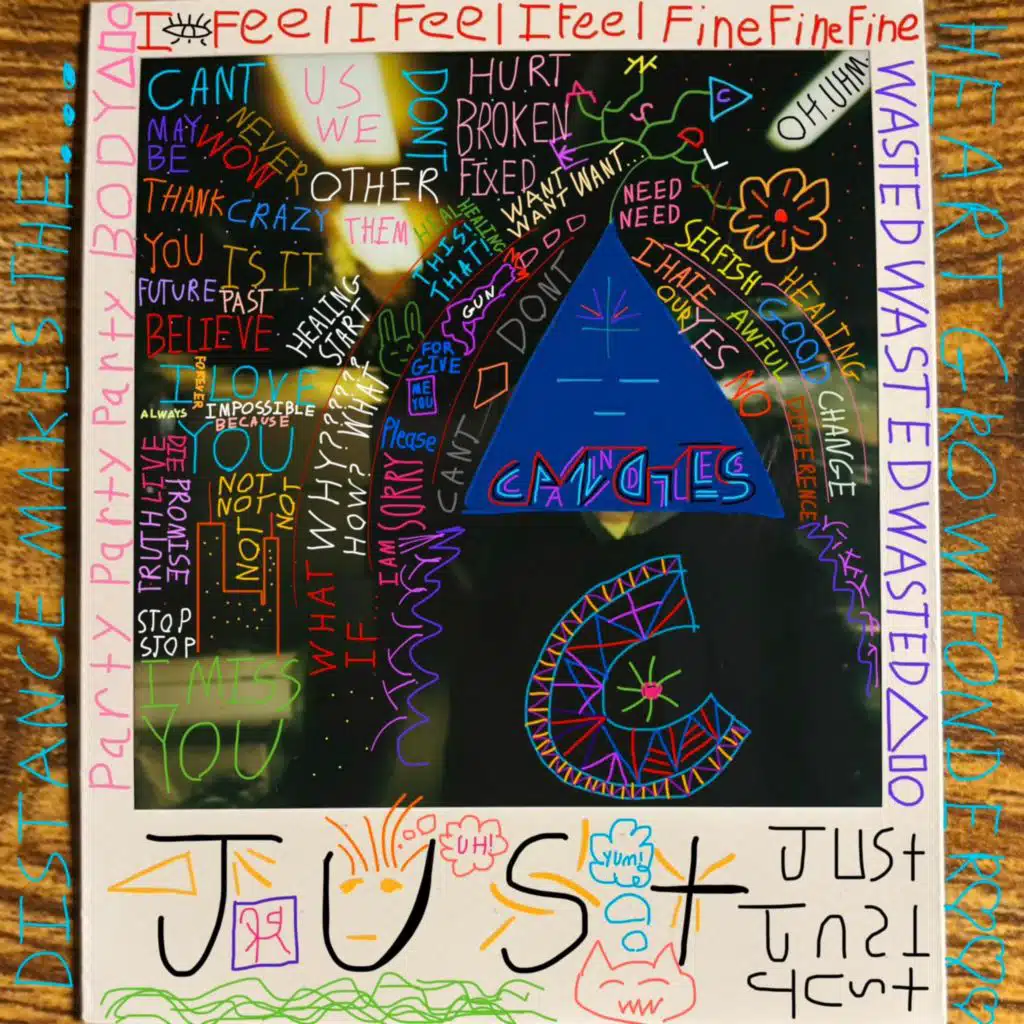 I FeelIFeelIFeel FineFineFine
DISTANCE MAKES THE...
Party Party Party BODY
CANT
US
WE
DONT
HURT
BROKEN
FIXED
MAY
BE
WOW
NEVER
OTHER
THEM
THANK
CRAZY
YOU
IS IT
FUTURE
PAST
BELIEVE
I LOVE
FOREVER
ALWAYS
IMPOSSIBLE
BECAUSE
YOU
TRUTH LIVE
DIE PROMISE
NOT
NOT
NOT
NOT
STOP
STOP
I MISS
YOU
HEALING
START
WHY??????
HOW? WHAT
WHAT
IF
HEAL
HEALING
THIS!
THAT!
GUN
FOR
GIVE
ME
YOU
Please
I AM SORRY
CANT
DONT
WANT
WANT WANT...
NEED
NEED
C
OH.UHM.
SELFISH
I HATE
OUR
YES
NO
AWFUL
GOOD
HEALING
CHANGE
DIFERENCE
C
WASTED WASTED WASTED
HEART GROW FONDER
JUSt
UH!
YUM!
JUSt
JUST
JUSt